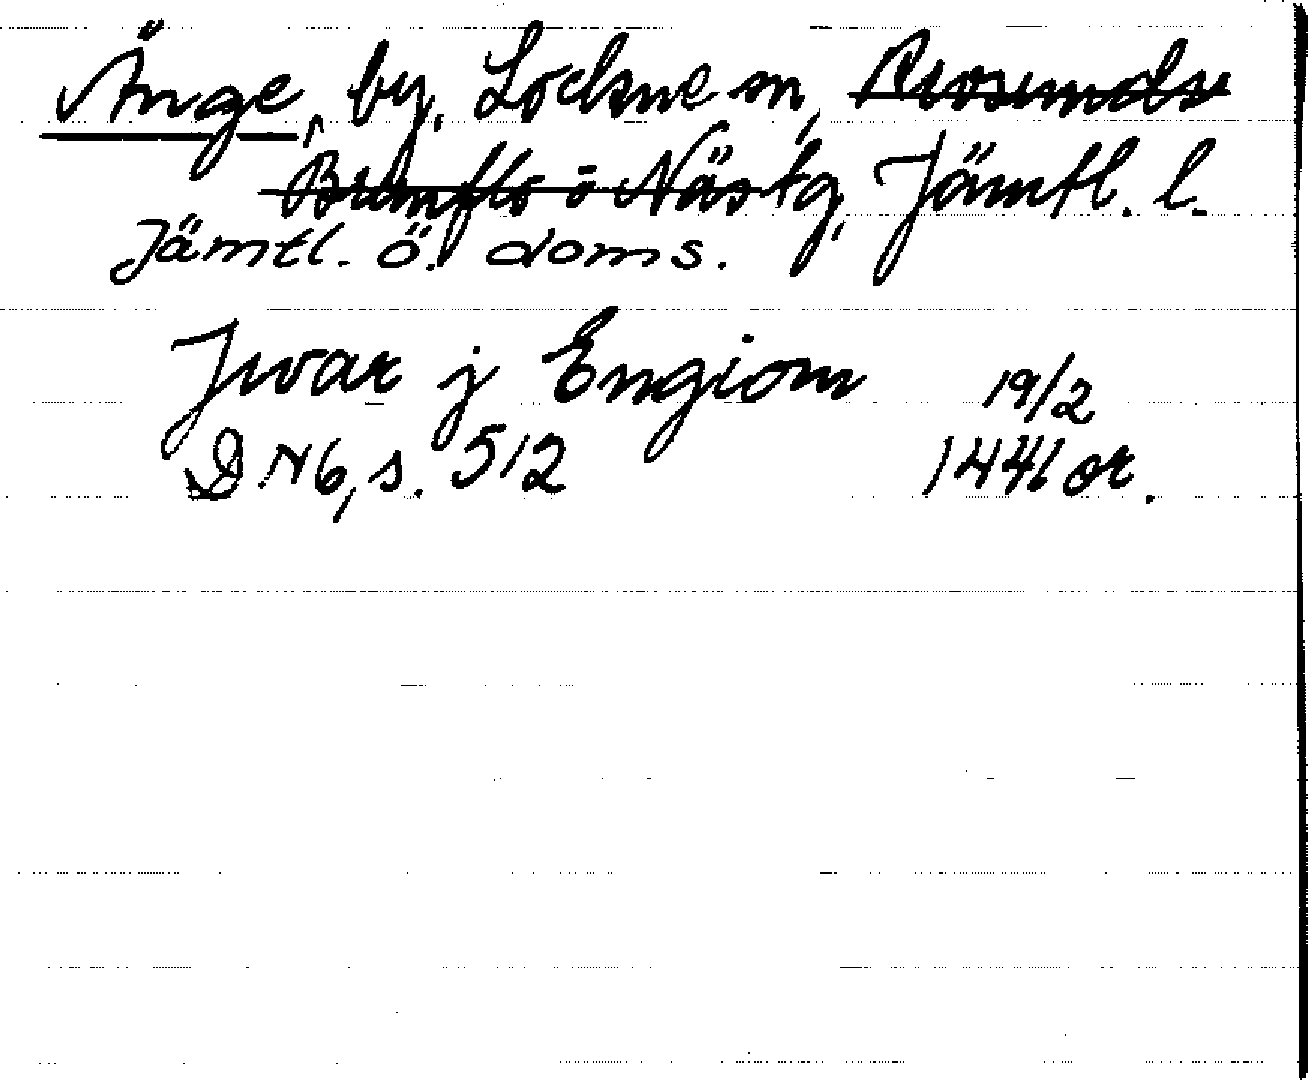 Änge, by, Lockne sn,
Brunflo o Näs tg, Jämtl. l.
Jämtl. ö. doms.
Jwar j Engiom 19/2
DN 16, s. 512 1446 or.